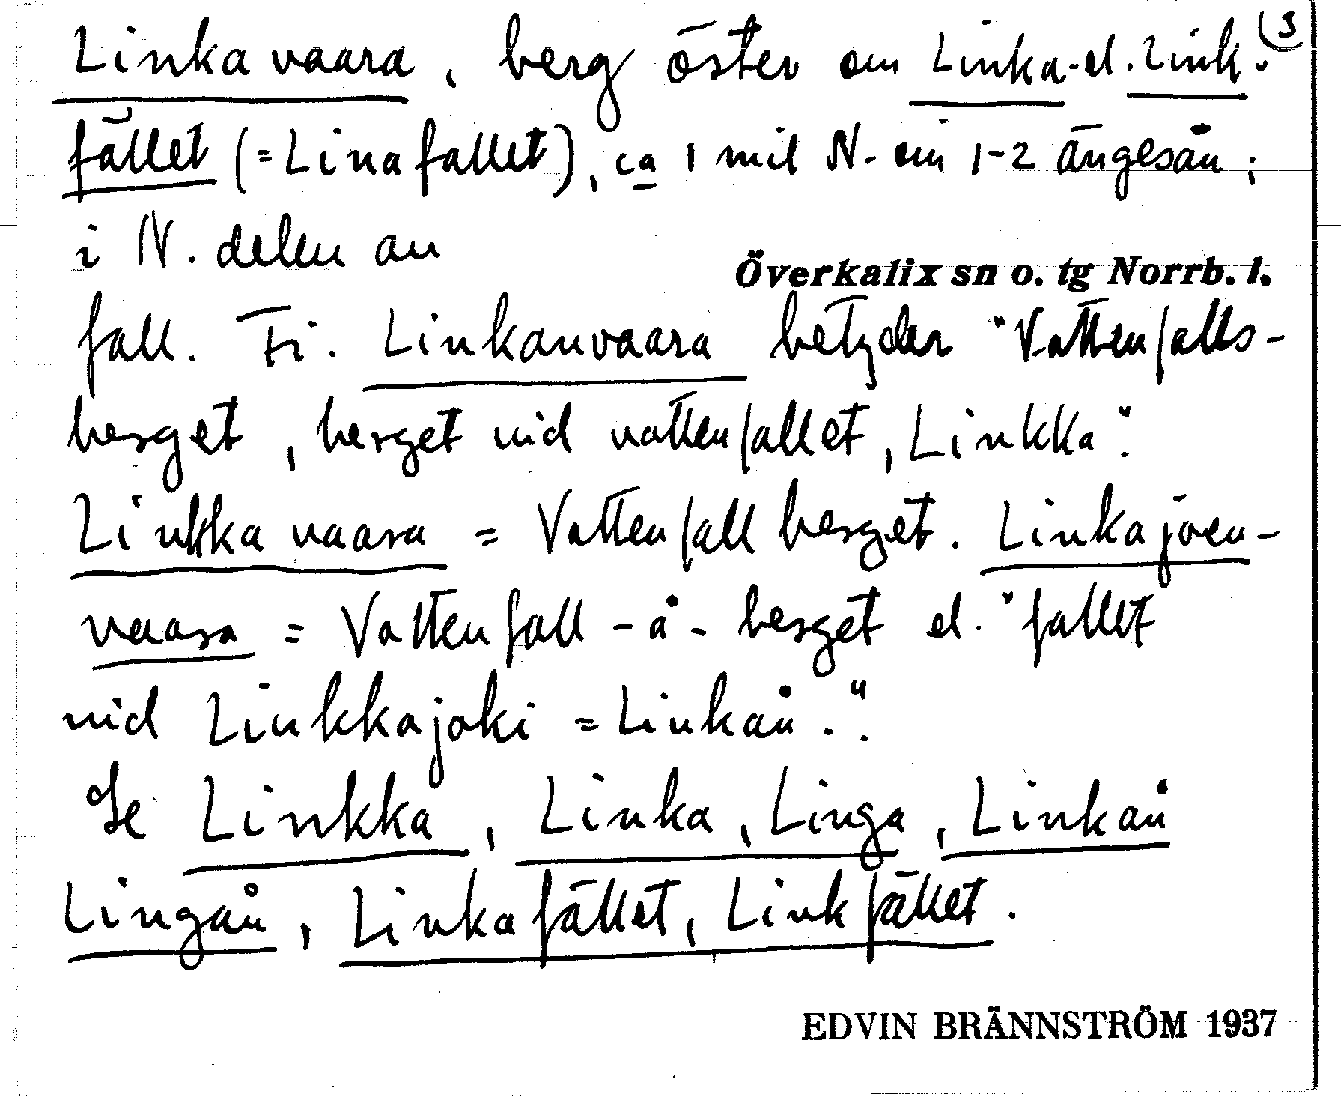 (3
Linkavaara, berg öster om Linka- el. Link-
fället (=Linafallet), ca 1 mil N. om 1-2 Ängesån;
i N. delen av
Överkalix sn o. tg Norrb. l.
fall. Fi. Linkanvaara betyder "Vattenfalls-
berget, berget vid vattenfallet, Linkka".
Linkka vaara = Vattenfallberget. Linkajoen-
vaara = Vattenfall-å-berget el. "fallet
vid Linkkajoki = Linkån.".
Se Linkka, Linka, Linga, Linkån
Lingån, Linkafället, Linkfället.
EDVIN BRÄNNSTRÖM 1937